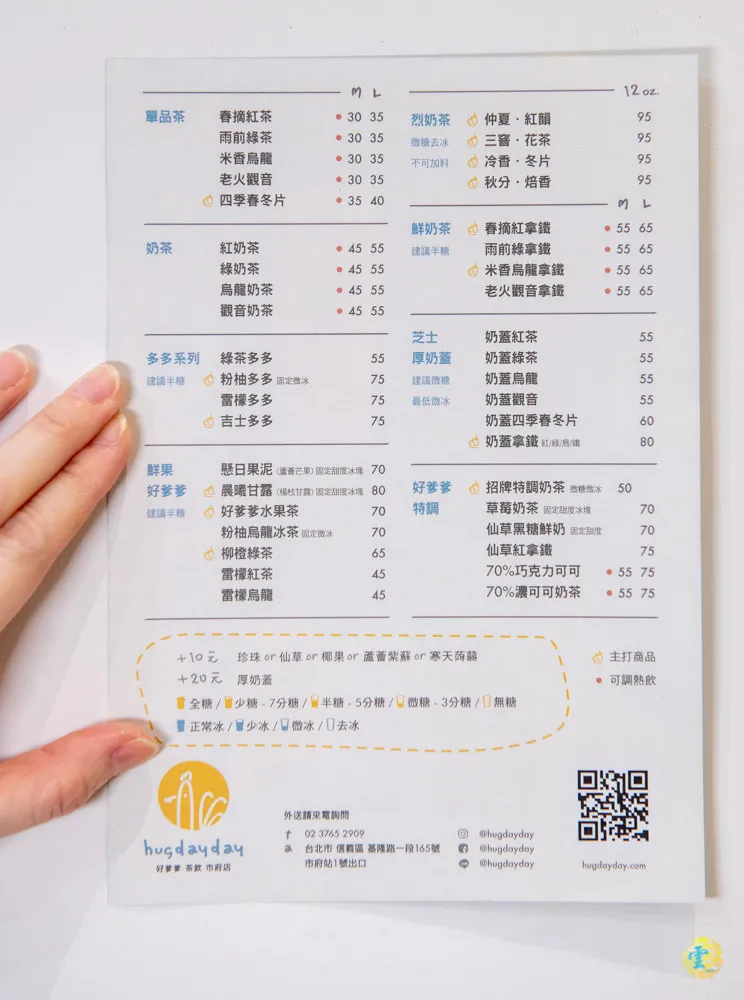 M L
單品茶 春摘紅茶 30 35
雨前綠茶 30 35
米香烏龍 30 35
老火觀音 30 35
四季春冬片 35 40
奶茶 紅奶茶 45 55
綠奶茶 45 55
烏龍奶茶 45 55
觀音奶茶 45 55
多多系列 綠茶多多 55
建議半糖 粉柚多多 固定微冰 75
雷檬多多 75
吉士多多 75
鮮果 懸日果泥 (蘆薈芒果) 固定甜度冰塊 70
好爹爹 晨曦甘露 (楊枝甘露) 固定甜度冰塊 80
建議半糖 好爹爹水果茶 70
粉柚烏龍冰茶 固定微冰 70
柳橙綠茶 65
雷檬紅茶 45
雷檬烏龍 45
12 oz.
烈奶茶 仲夏・紅韻 95
微糖去冰 三窨・花茶 95
不可加料 冷香・冬片 95
秋分・焙香 95
M L
鮮奶茶 春摘紅拿鐵 55 65
建議半糖 雨前綠拿鐵 55 65
米香烏龍拿鐵 55 65
老火觀音拿鐵 55 65
芝士 奶蓋紅茶 55
厚奶蓋 奶蓋綠茶 55
建議微糖 奶蓋烏龍 55
最低微冰 奶蓋觀音 55
奶蓋四季春冬片 60
奶蓋拿鐵 紅/綠/烏/鐵 80
好爹爹 招牌特調奶茶 微糖微冰 50
特調 草莓奶茶 固定甜度冰塊 70
仙草黑糖鮮奶 固定甜度 70
仙草紅拿鐵 75
70%巧克力可可 55 75
70%濃可可奶茶 55 75
+10元 珍珠 or 仙草 or 椰果 or 蘆薈紫蘇 or 寒天蒟蒻
+20元 厚奶蓋
全糖 / 少糖 - 7分糖 / 半糖 - 5分糖 / 微糖 - 3分糖 / 無糖
正常冰 / 少冰 / 微冰 / 去冰
主打商品
可調熱飲
hugdayday
好爹爹 茶飲 市府店
外送請來電詢問
t 02 3765 2909
a 台北市 信義區 基隆路一段165號
市府站1號出口
@hugdayday
@hugdayday
@hugdayday
hugdayday.com
雲